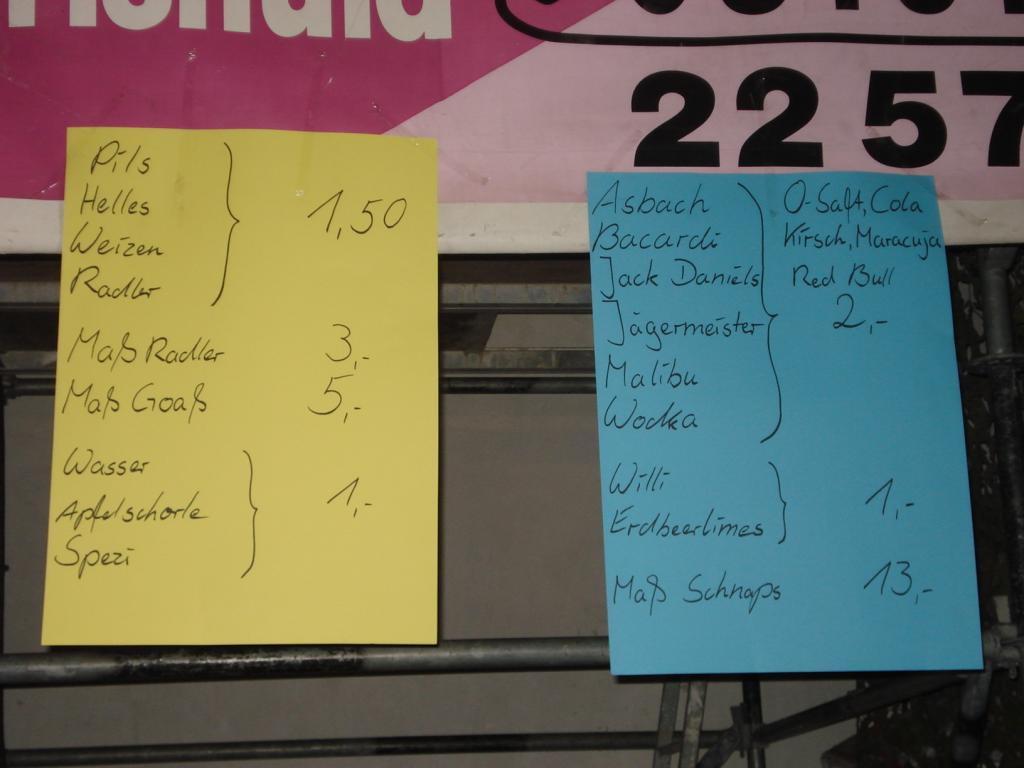 22 57
Pils
Helles
Weizen
Radler
1,50
Maß Radler 3,-
Maß Goaß 5,-
Wasser
Apfelschorle
Spezi
1,-
Asbach
Bacardi
Jack Daniels
Jägermeister
Malibu
Wodka
O-Saft, Cola
Kirsch, Maracuja
Red Bull
2,-
Willi
Erdbeerlimes
1,-
Maß Schnaps 13,-